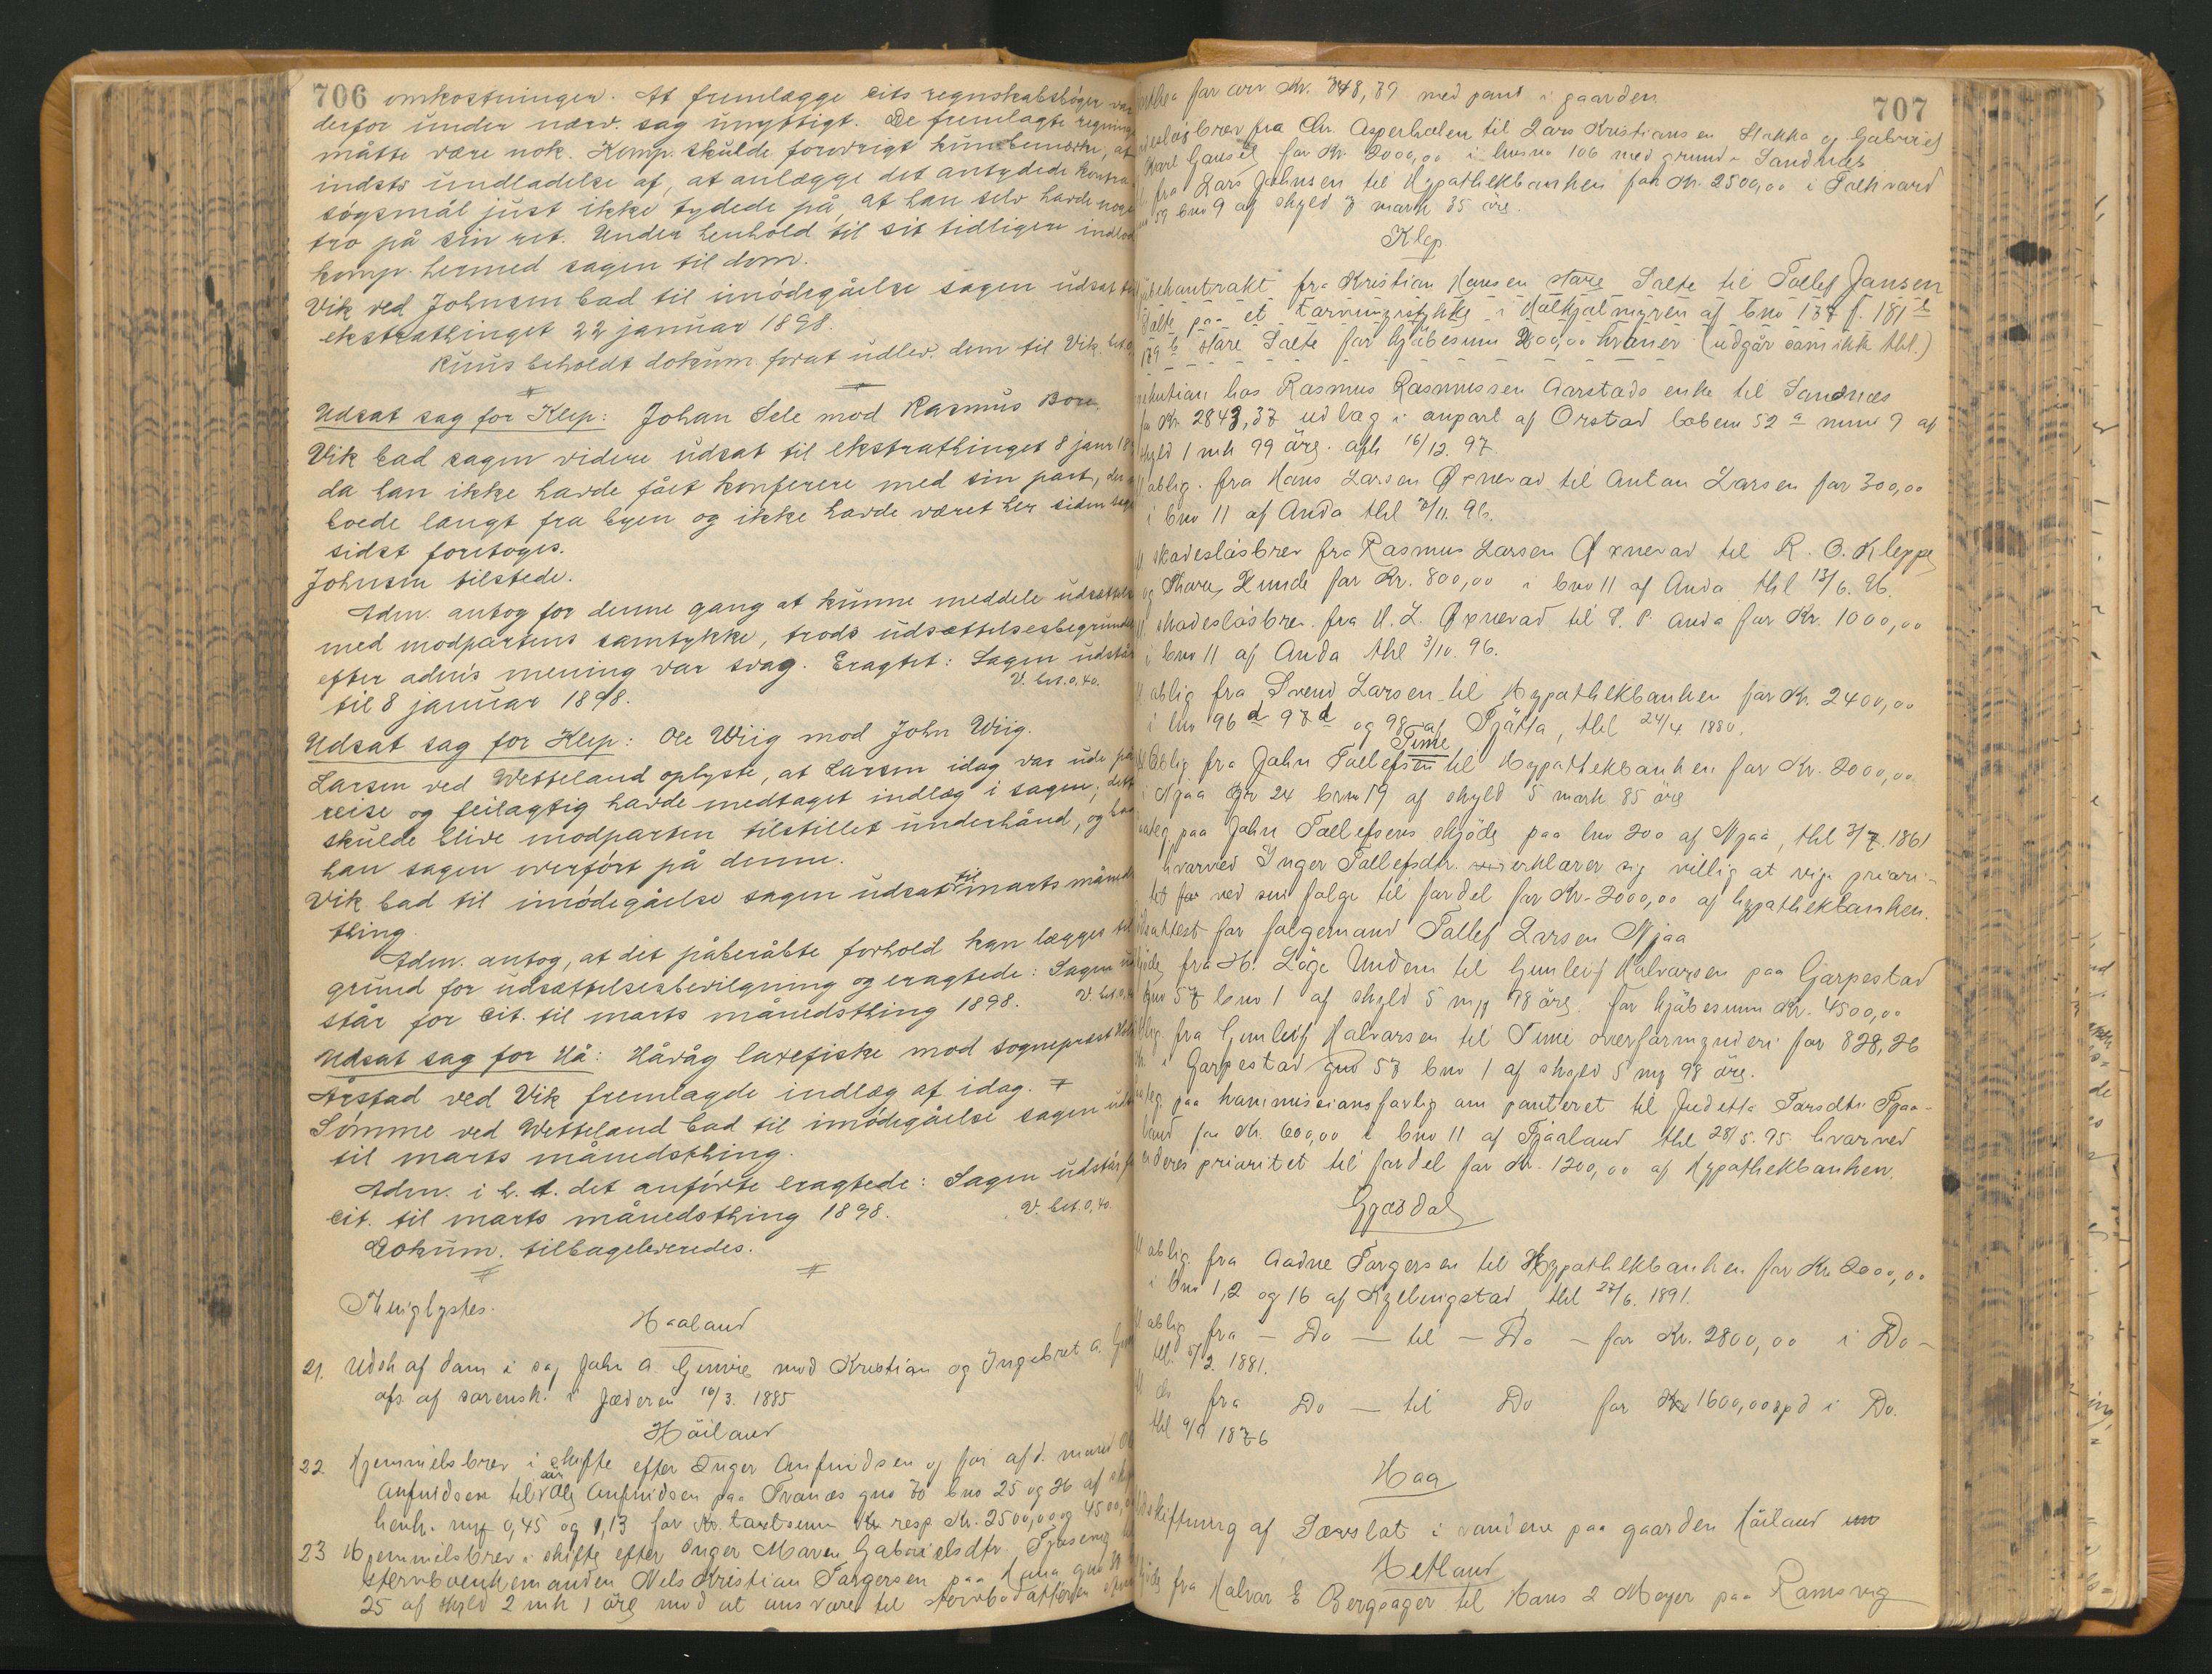 706 omkostninger. At fremlægge cits regnskabsbøger var
derfor under nærv. sag unyttigt. De fremlagte regninger
måtte være nok. Komp. skulde forøvrigt kun bemærke, at
indsts undladelse af, at anlægge det antydede kontra-
søgsmål just ikke tydede på, at han selv havde noge
tro på sin ret. Under henhold til sit tidligere indlod
komp. hermed sagen til dom.
Vik ved Johnsen bad til imødegåelse sagen udsat til
ekstrathinget 22 januar 1898.
Kuus beholdt dokum. forat udlev. dem til Vik.
Udsat sag for Klep: Johan Sele mod Rasmus Bore.
Vik bad sagen videre udsat til ekstrathinget 8 janr 18
da han ikke havde fået konferere med sin part, der
boede langt fra byen og ikke havde været her siden sagen
sidst foretoges.
Johnsen tilstede.
Adm. antog for denne gang at kunne meddele udsættelse
med modpartens samtykke, trods udsættelsesbegrundel
efter adm's mening var svag. Eragtet: Sagen udstår
til 8 januar 1898. V. bet. 0,40.
Udsat sag for Klep: Ole Wiig mod John Wiig.
Larsen ved Wetteland oplyste, at Larsen idag var ude på
reise og feilagtig havde medtaget indlæg i sagen; dette
skulde blive modparten tilstillet underhånd, og bad
han sagen overført på denne.
Vik bad til imødegåelse sagen udsat til marts måneds
thing.
Adm. antog, at det påberåbte forhold kan lægges til
grund for udsættelsesbevilgning og eragtede: Sagen ud
står for cit. til marts månedsthing 1898. V. bet. 0,40
Udsat sag for Hå: Håvåg laxefiske mod sogneprest
Årstad ved Vik fremlagde indlæg af idag.
Sømme ved Wetteland bad til imødegåelse sagen uds
til marts månedsthing.
Adm. i h. t. det anførte eragtede: Sagen udstår for
cit. til marts månedsthing 1898. V. bet. 0,40.
Dokum. tilbageleveredes.
Thinglystes.
Haaland
21. Udsk af dom i sag John A. Gimre mod Kristian og Ingebret A.
afs. af sorensk. i Jæderen 16/3. 1885
Høiland
22 Hjemmelsbrev i skifte efter Inger Anfindsen og før afd. mand
Anfindsen til søn Olaj Anfindsen paa Tranæs gno 70 bno 25 og 26 af
henh. my 0,45 og 1,13 for Kr. taxtsum resp Kr. 2500,00 og 4500,
23 Hjemmelsbrev i skifte efter Inger Maren Gabrielsdtr.
stervboenkemanden Nels Kristian Torgersen paa Hana gno
25 af skyld 2 mk 1 øre mod at ansvare til stervbod
707
for arv Kr. 348,39 med pant i gaarden
fra Chr. Asperholen til Lars Kristiansen Stokka og Gabriel
Karl Gausel for Kr 2000,00 i husno 106 med grund - Sandnæs
fra Lars Johnsen til Hypothekbanken for Kr. 2500,00 i Folkvord
59 bno 9 af skyld 7 mark 35 øre.
Klep
kjøbekontrakt fra Kristian Hansen store Salte til Tollef Jansen
Salte paa et Torvmyrstykke i Kalhjalmyren af bno 137 f. 181 b
179 b store Salte for kjøbesum 200,00 kroner (udgår som ikke thl.)
hos Rasmus Rasmussen Aarstads enke til Sandnæs
for Kr 2843,37 udlæg i anpart af Orstad løbenr 52 a nmr 9 af
skyld 1 mk 99 øre. afh 16/12. 97
oblig. fra Hans Larsen Øxnevad til Anton Larsen for 300,00
i bno 11 af Anda thl 7/11. 96.
skadesløsbrev fra Rasmus Larsen Øxnevad til R. O. Kleppe
og Thore Lunde for Kr. 800,00 i bno 11 af Anda thl 13/6. 96.
skadesløsbrev fra H. L. Øxnevad til S. P. Anda for Kr. 1000,00
i bno 11 af Anda thl 3/10. 96.
oblig fra Svend Larsen til Hypothekbanken for Kr. 2400,00
i lno 96 d 97 d og 98 af Tjøtta, thl 24/4 1880.
Time
Oblig. fra John Tollefsen til Hypothekbanken for Kr. 2000,00
i Njaa gr 24 bno 19 af skyld 5 mark 85 øre
paa John Tollefsens skjøde paa lno 200 af Njaa, thl 3/7. 1861
hvorved Inger Tollefsdtr. erklærer sig villig at vige priori-
tet for ved sin folge til fordel for Kr. 2000,00 af hypothekbanken.
attest for folgemand Tollef Larsen Njaa
fra H. Løge Undem til Gunleif Halvorsen paa Garpestad
gno 57 bno 1 af skyld 5 my 98 øre. for kjøbesum Kr. 4500,00
oblig. fra Gunleif Halvorsen til Time overformynderi for 828,26
i Garpestad gno 57 bno 1 af skyld 5 my 98 øre.
paa kommissionsforlig om panteret til Judetta Torsdtr Tjaa-
land for Kr. 600,00 i bno 11 af Tjaaland thl 28/5. 95. hvorved
prioritet til fordel for Kr. 1200,00 af Hypothekbanken.
Gjæsdal
oblig. fra Aadne Torgersen til Hypothekbanken for Kr 2000,00
i bno 1,2 og 16 af Kyllingstad, thl 27/6. 1891.
oblig fra - Do - til - Do - for Kr. 2800,00 i Do -
thl. 5/2. 1881.
do fra Do - til Do for 1600,00 spd i Do.
thl 9/9 1876
Haa
Udskiftning af Sævslot i vandene paa gaarden Høiland
Hetland
fra Halvor E Bergsager til Hans L Moyer paa Ramsvig